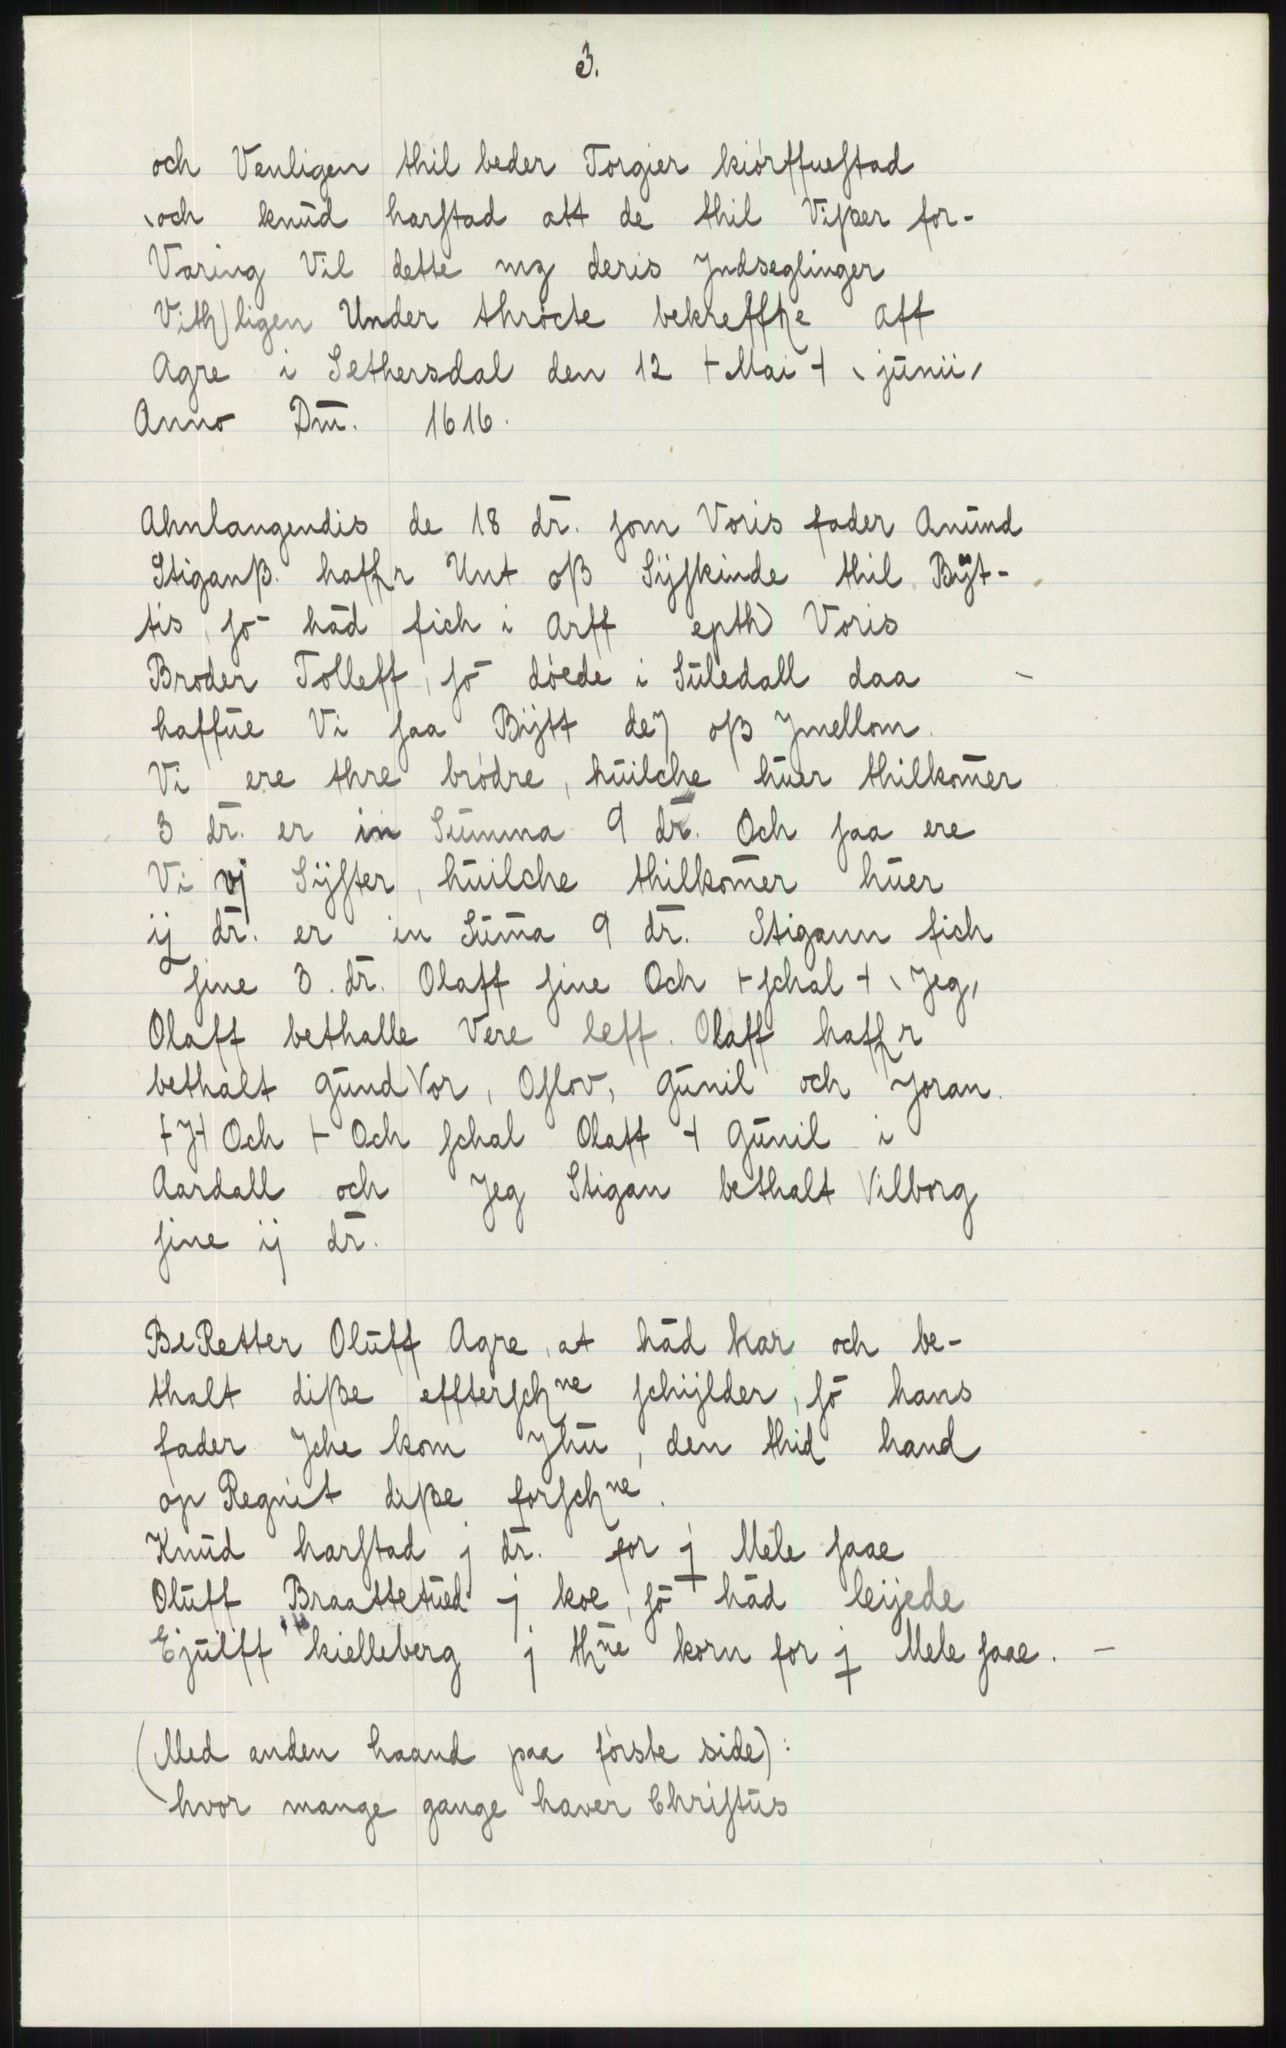 3.
och Venligen thil beder Torgier kiørffueſtad
\och knud harſtad att de thil Vißer for-
Varing Vil dette mz deris Jndseglinger
Vith)ligen Under thrøcte bekreffhe Aff
Agre i Sethersdal den 12 + Mai + \ junii /
Anno Dm̄. 1616.
Ahnlangendis de 18 dr̄. ſom Voris fader Anund
Stiganß. haffr Unt oß Sÿſkinde thil Bÿt-
tis, ſō hād fich i Arff epth) Voris
Broder Tolleff, ſō døede i Suledall daa
haffue Vi ſaa Bÿtt de) oß Jmellom.
Vi ere thre brødre, huilche huer thilkom̄er
3 dr̄. er in Summa 9 dr̄. Och ſaa ere
Vi vj Sÿſter, huilche thilkom̄er huer
ij dr̄. er in Sum̄a 9 dr̄. Stigann fich
ſine 3. dr̄. Olaff ſine Och + ſchal + \ Jeg /
Olaff bethalle Vere leff. Olaff haffr
bethalt gundVor, Oſlov, gunil och Joran.
+J+ Och + Och ſchal Olaff + gunil i
Aardall och Jeg Stigan bethalt Vilborg
ſine ij dr̄.
BeRetter Oluff Agre, at hād har och be-
thalt diße effterſchne ſchÿlder, ſō hans
fader Jche kom Jhu, den thid hand
op Regnit diße forſchne.
Knud harſtad j dr̄. for j Mele ſaae
Oluff Braattetued j koe, ſō hād leÿede
Ejulff kielleberg j thne korn for j Mele ſaae. -
(Med anden haand paa første side):
hvor mange gange haver Chriſtus